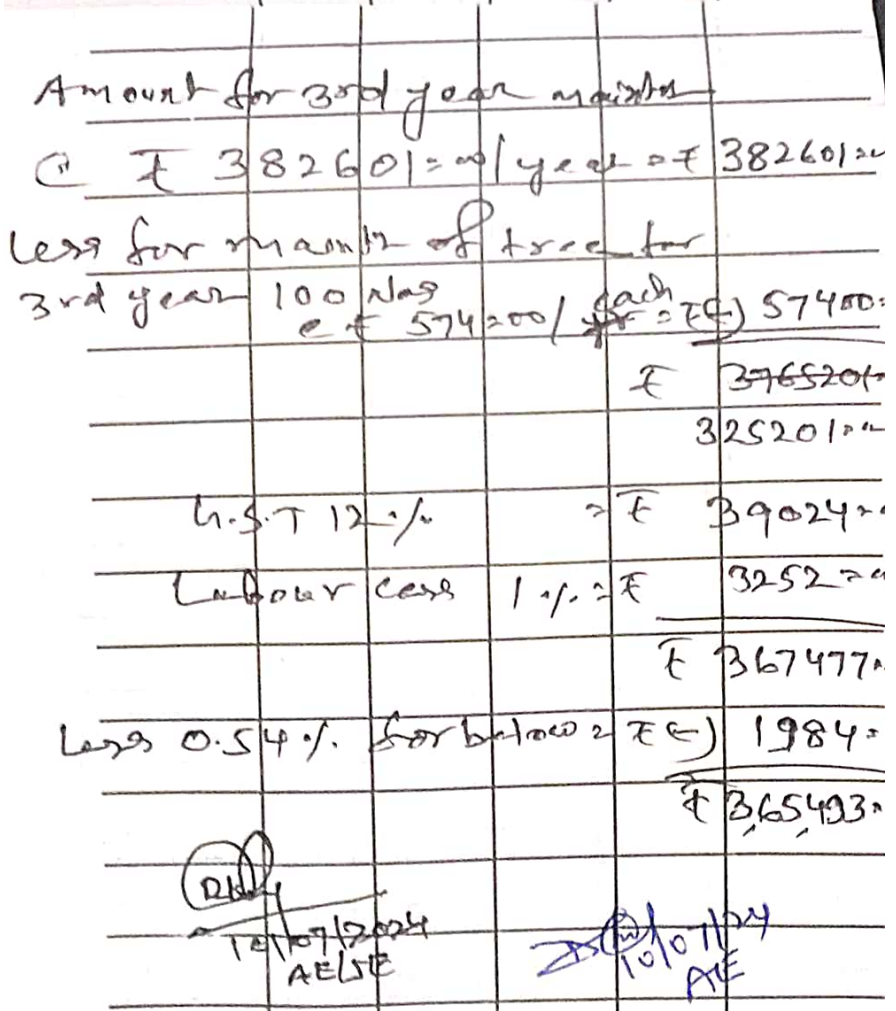 Amount for 3rd year maintn
@ ₹ 382601=00/year = ₹ 382601=00
Less for maintn of tree for
3rd year 100 Nos
@ ₹ 574=00/ each = ₹ (-) 57400=
₹ 376520/-
325201=00
G.S.T 12 % = ₹ 39024=
Labour cess 1 % = ₹ 3252=00
₹ 367477=
Less 0.54 %. for below = ₹ (-) 1984=
₹ 3,65,493=
10/07/2024 10/07/24
AE/SE AE